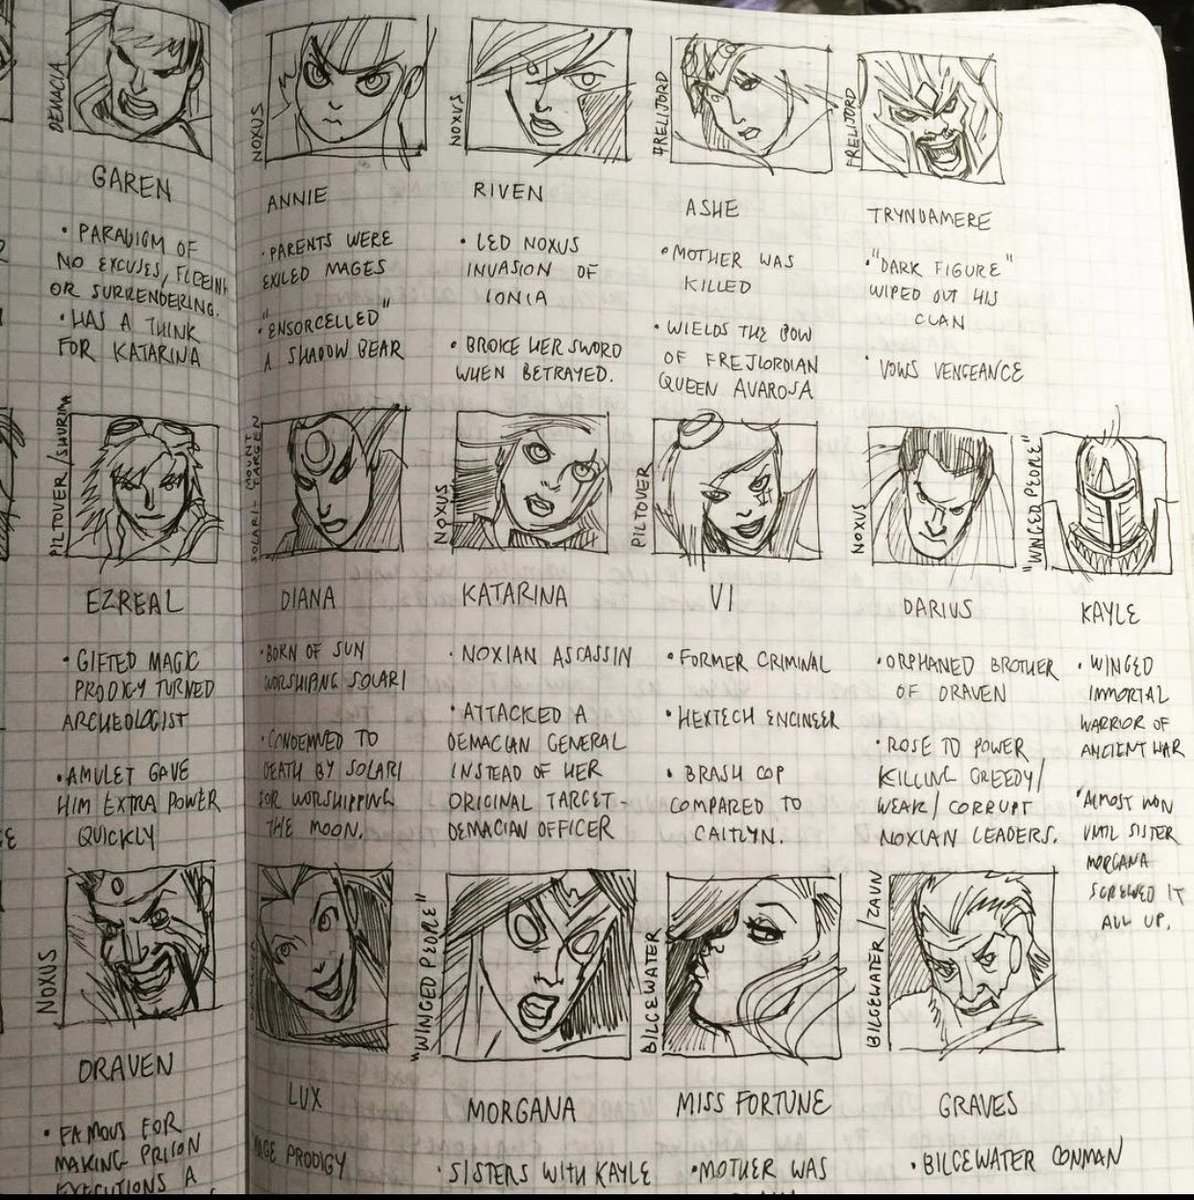 DEMACIA
GAREN
• PARADIGM OF
NO EXCUSES, FLEEING
OR SURRENDERING.
• HAS A THINK
FOR KATARINA
NOXUS
ANNIE
• PARENTS WERE
EXILED MAGES
• "ENSORCELLED"
A SHADOW BEAR
NOXUS
RIVEN
• LED NOXUS
INVASION OF
IONIA
• BROKE HER SWORD
WHEN BETRAYED.
FRELJORD
ASHE
• MOTHER WAS
KILLED
• WIELDS THE BOW
OF FREJLORDIAN
QUEEN AVAROSA
FRELJORD
TRYNDAMERE
• "DARK FIGURE"
WIPED OUT HIS
CLAN
• VOWS VENGEANCE
PILTOVER/SHURIMA
EZREAL
• GIFTED MAGIC
PRODIGY TURNED
ARCHEOLOGIST
• AMULET GAVE
HIM EXTRA POWER
QUICKLY
SOLARI - MOUNT
TARGEN
DIANA
• BORN OF SUN
WORSHIPING SOLARI
• CONDEMNED TO
DEATH BY SOLARI
FOR WORSHIPPING
THE MOON.
NOXUS
KATARINA
• NOXIAN ASSASSIN
• ATTACKED A
DEMACIAN GENERAL
INSTEAD OF HER
ORIGINAL TARGET -
DEMACIAN OFFICER
PILTOVER
VI
• FORMER CRIMINAL
• HEXTECH ENGINEER
• BRASH COP
COMPARED TO
CAITLYN.
NOXUS
DARIUS
• ORPHANED BROTHER
OF DRAVEN
• ROSE TO POWER
KILLING GREEDY/
WEAK/CORRUPT
NOXIAN LEADERS.
"WINGED PEOPLE"
KAYLE
• WINGED
IMMORTAL
WARRIOR OF
ANCIENT WAR
• ALMOST WON
UNTIL SISTER
MORGANA
SCREWED IT
ALL UP.
NOXUS
DRAVEN
• FAMOUS FOR
MAKING PRISON
EXECUTIONS A
LUX
MAGE PRODIGY
"WINGED PEOPLE"
MORGANA
• SISTERS WITH KAYLE
BILGEWATER
MISS FORTUNE
• MOTHER WAS
BILGEWATER/ZAUN
GRAVES
• BILGEWATER CONMAN